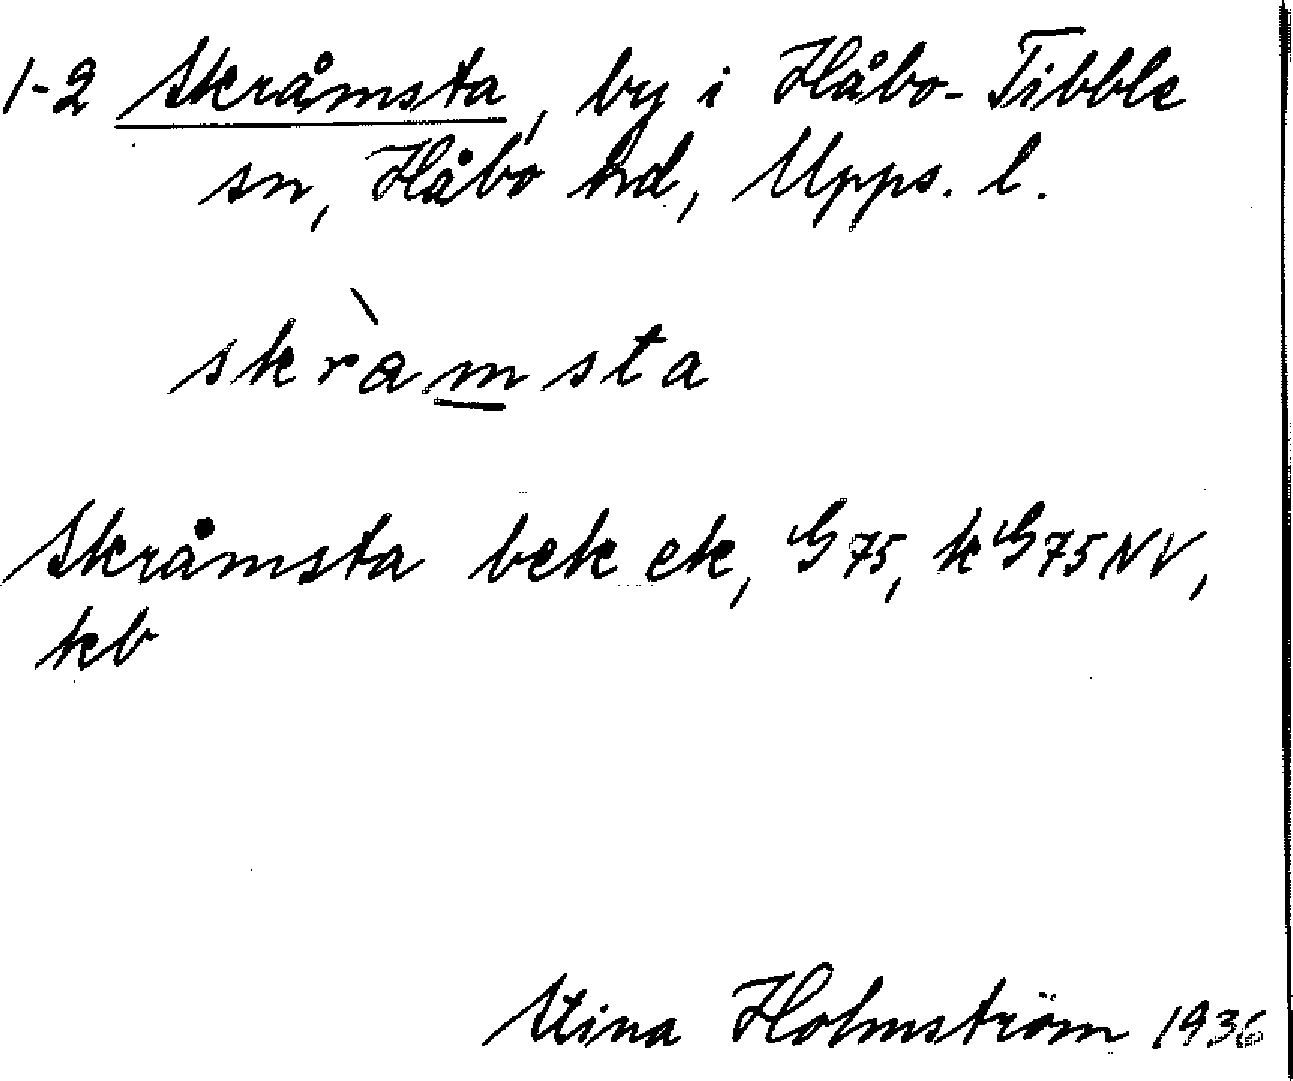 1-2 Skråmsta, by i Håbo-Tibble
sn, Håbo hd, Upps. l.
skràmsta
Skråmsta bek ek, G 75, k G 75 NV,
kb
Stina Holmström 1936